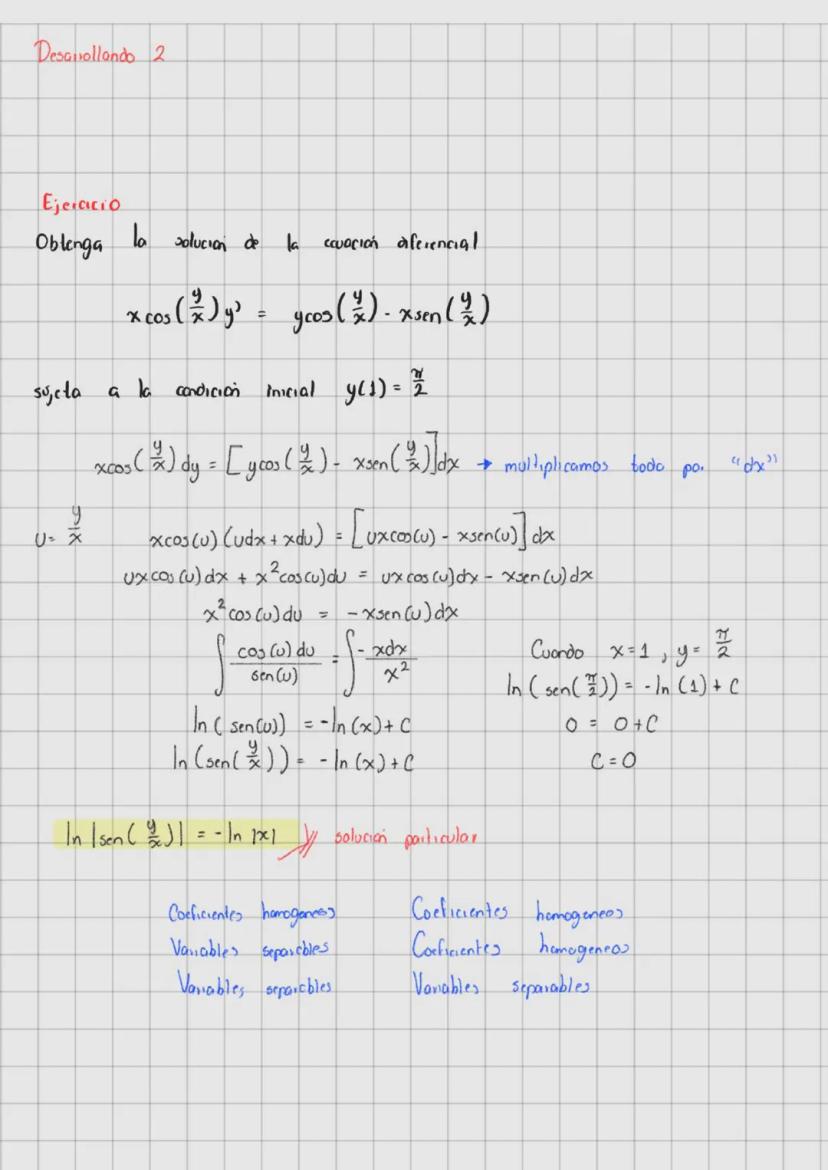 Desarrollando 2
Ejercicio
Obtenga la solución de la ecuación diferencial
x cos(y/x) y' = y cos(y/x) - x sen(y/x)
sujeta a la condición inicial y(1) = π/2
x cos(y/x) dy = [y cos(y/x) - x sen(y/x)] dx → multiplicamos todo por "dx"
u = y/x
x cos(u) (udx + xdu) = [ux cos(u) - x sen(u)] dx
ux cos(u) dx + x² cos(u) du = ux cos(u) dx - x sen(u) dx
x² cos(u) du = - x sen(u) dx
∫ cos(u) du / sen(u) = ∫ - xdx / x²
ln(sen(u)) = - ln(x) + C
ln(sen(y/x)) = - ln(x) + C
Cuando x = 1, y = π/2
ln(sen(π/2)) = - ln(1) + C
0 = 0 + C
C = 0
ln |sen(y/x)| = - ln |x| solución particular
Coeficientes homogeneos
Variables separables
Variables separables
Coeficientes homogeneos
Coeficientes homogeneos
Variables separables